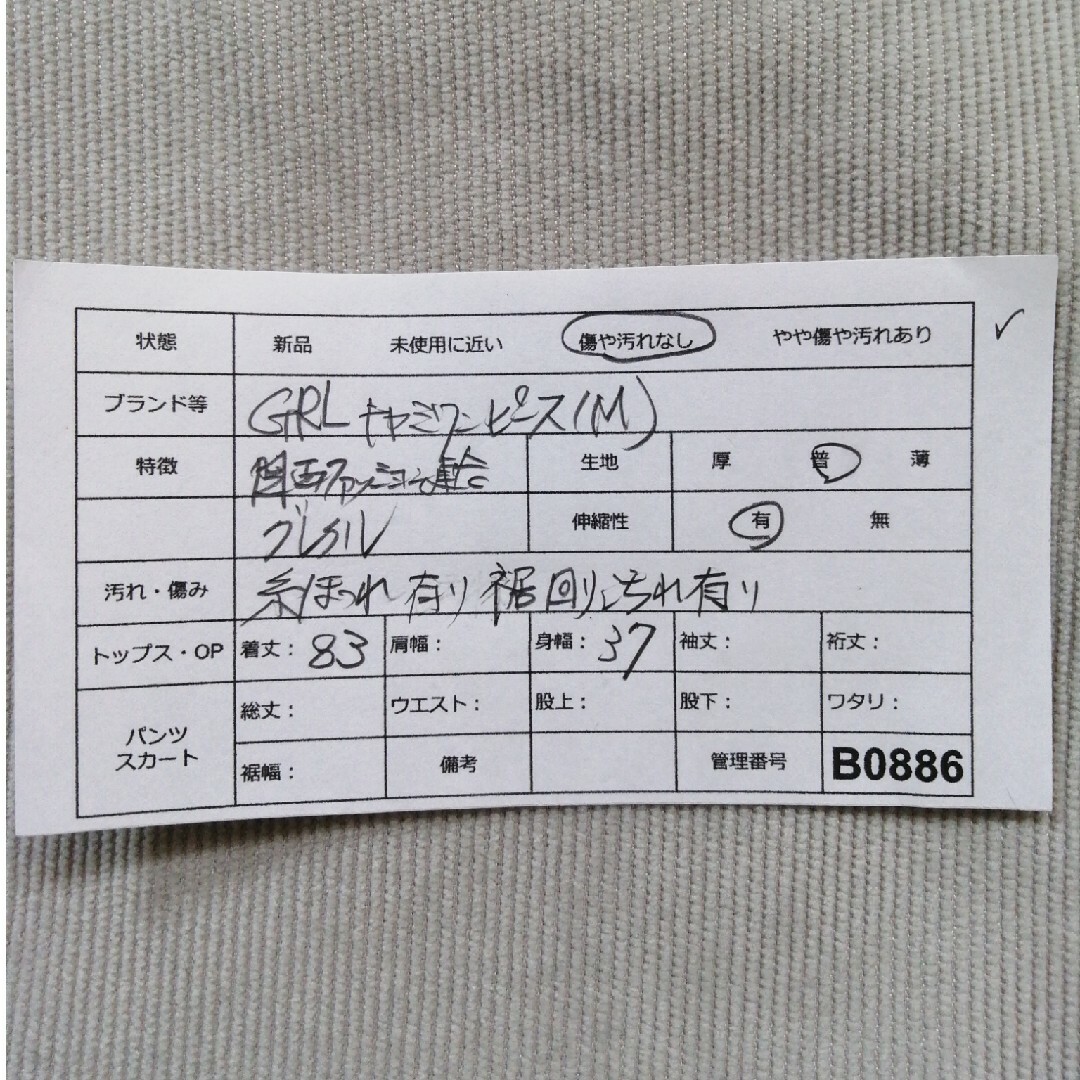 状態 新品 未使用に近い 傷や汚れなし やや傷や汚れあり
ブランド等 GRL キャミワンピース(M)
特徴 生地 厚 普 薄
グレイル 伸縮性 有 無
汚れ・傷み 糸ほつれ有り 裾回り汚れ有り
トップス・OP 着丈: 83 肩幅: 身幅: 37 袖丈: 裄丈:
パンツ スカート 総丈: ウエスト: 股上: 股下: ワタリ:
裾幅: 備考 管理番号 B0886